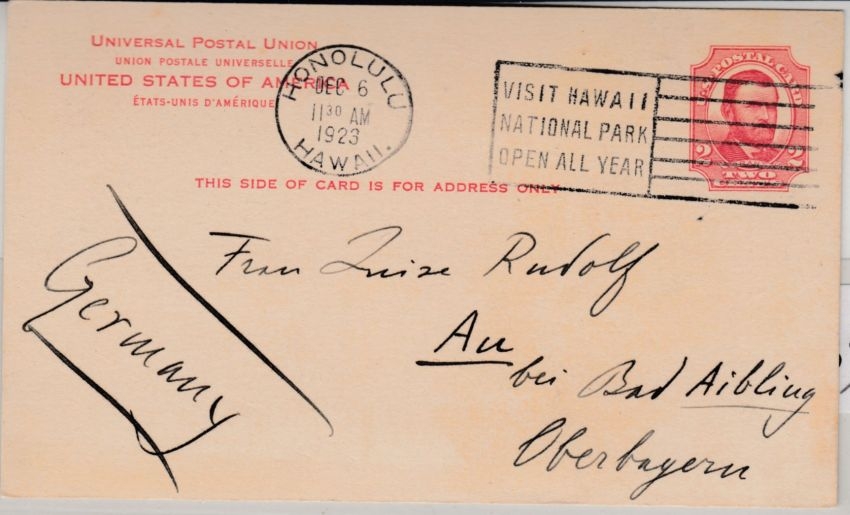 UNIVERSAL POSTAL UNION
UNION POSTALE UNIVERSELLE
UNITED STATES OF AMERICA
ÉTATS-UNIS D'AMÉRIQUE
HONOLULU
DEC 6
11 30 AM
1923
HAWAII.
VISIT HAWAII
NATIONAL PARK
OPEN ALL YEAR
U.S. POSTAL CARD
2 2
TWO
THIS SIDE OF CARD IS FOR ADDRESS ONLY
Frau Luise Rudolf
Au
bei Bad Aibling
Oberbayern
Germany